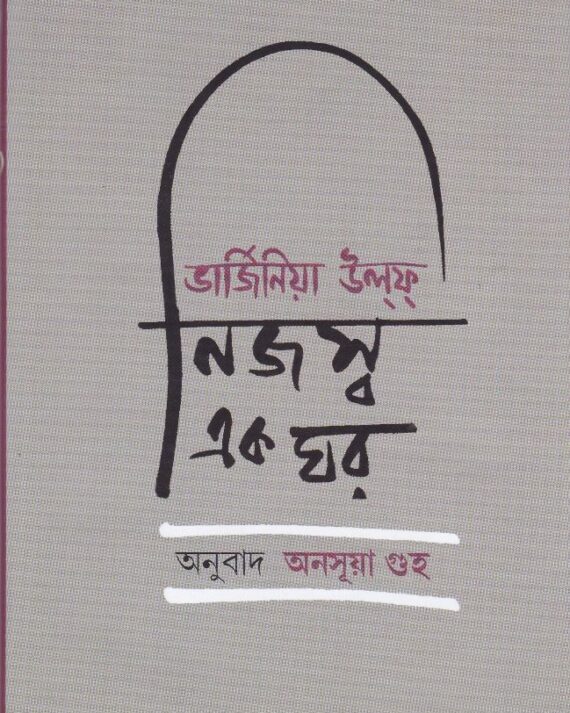 ভার্জিনিয়া উল্‌ফ্
নিজস্ব
এক ঘর
অনুবাদ অনসূয়া গুহ